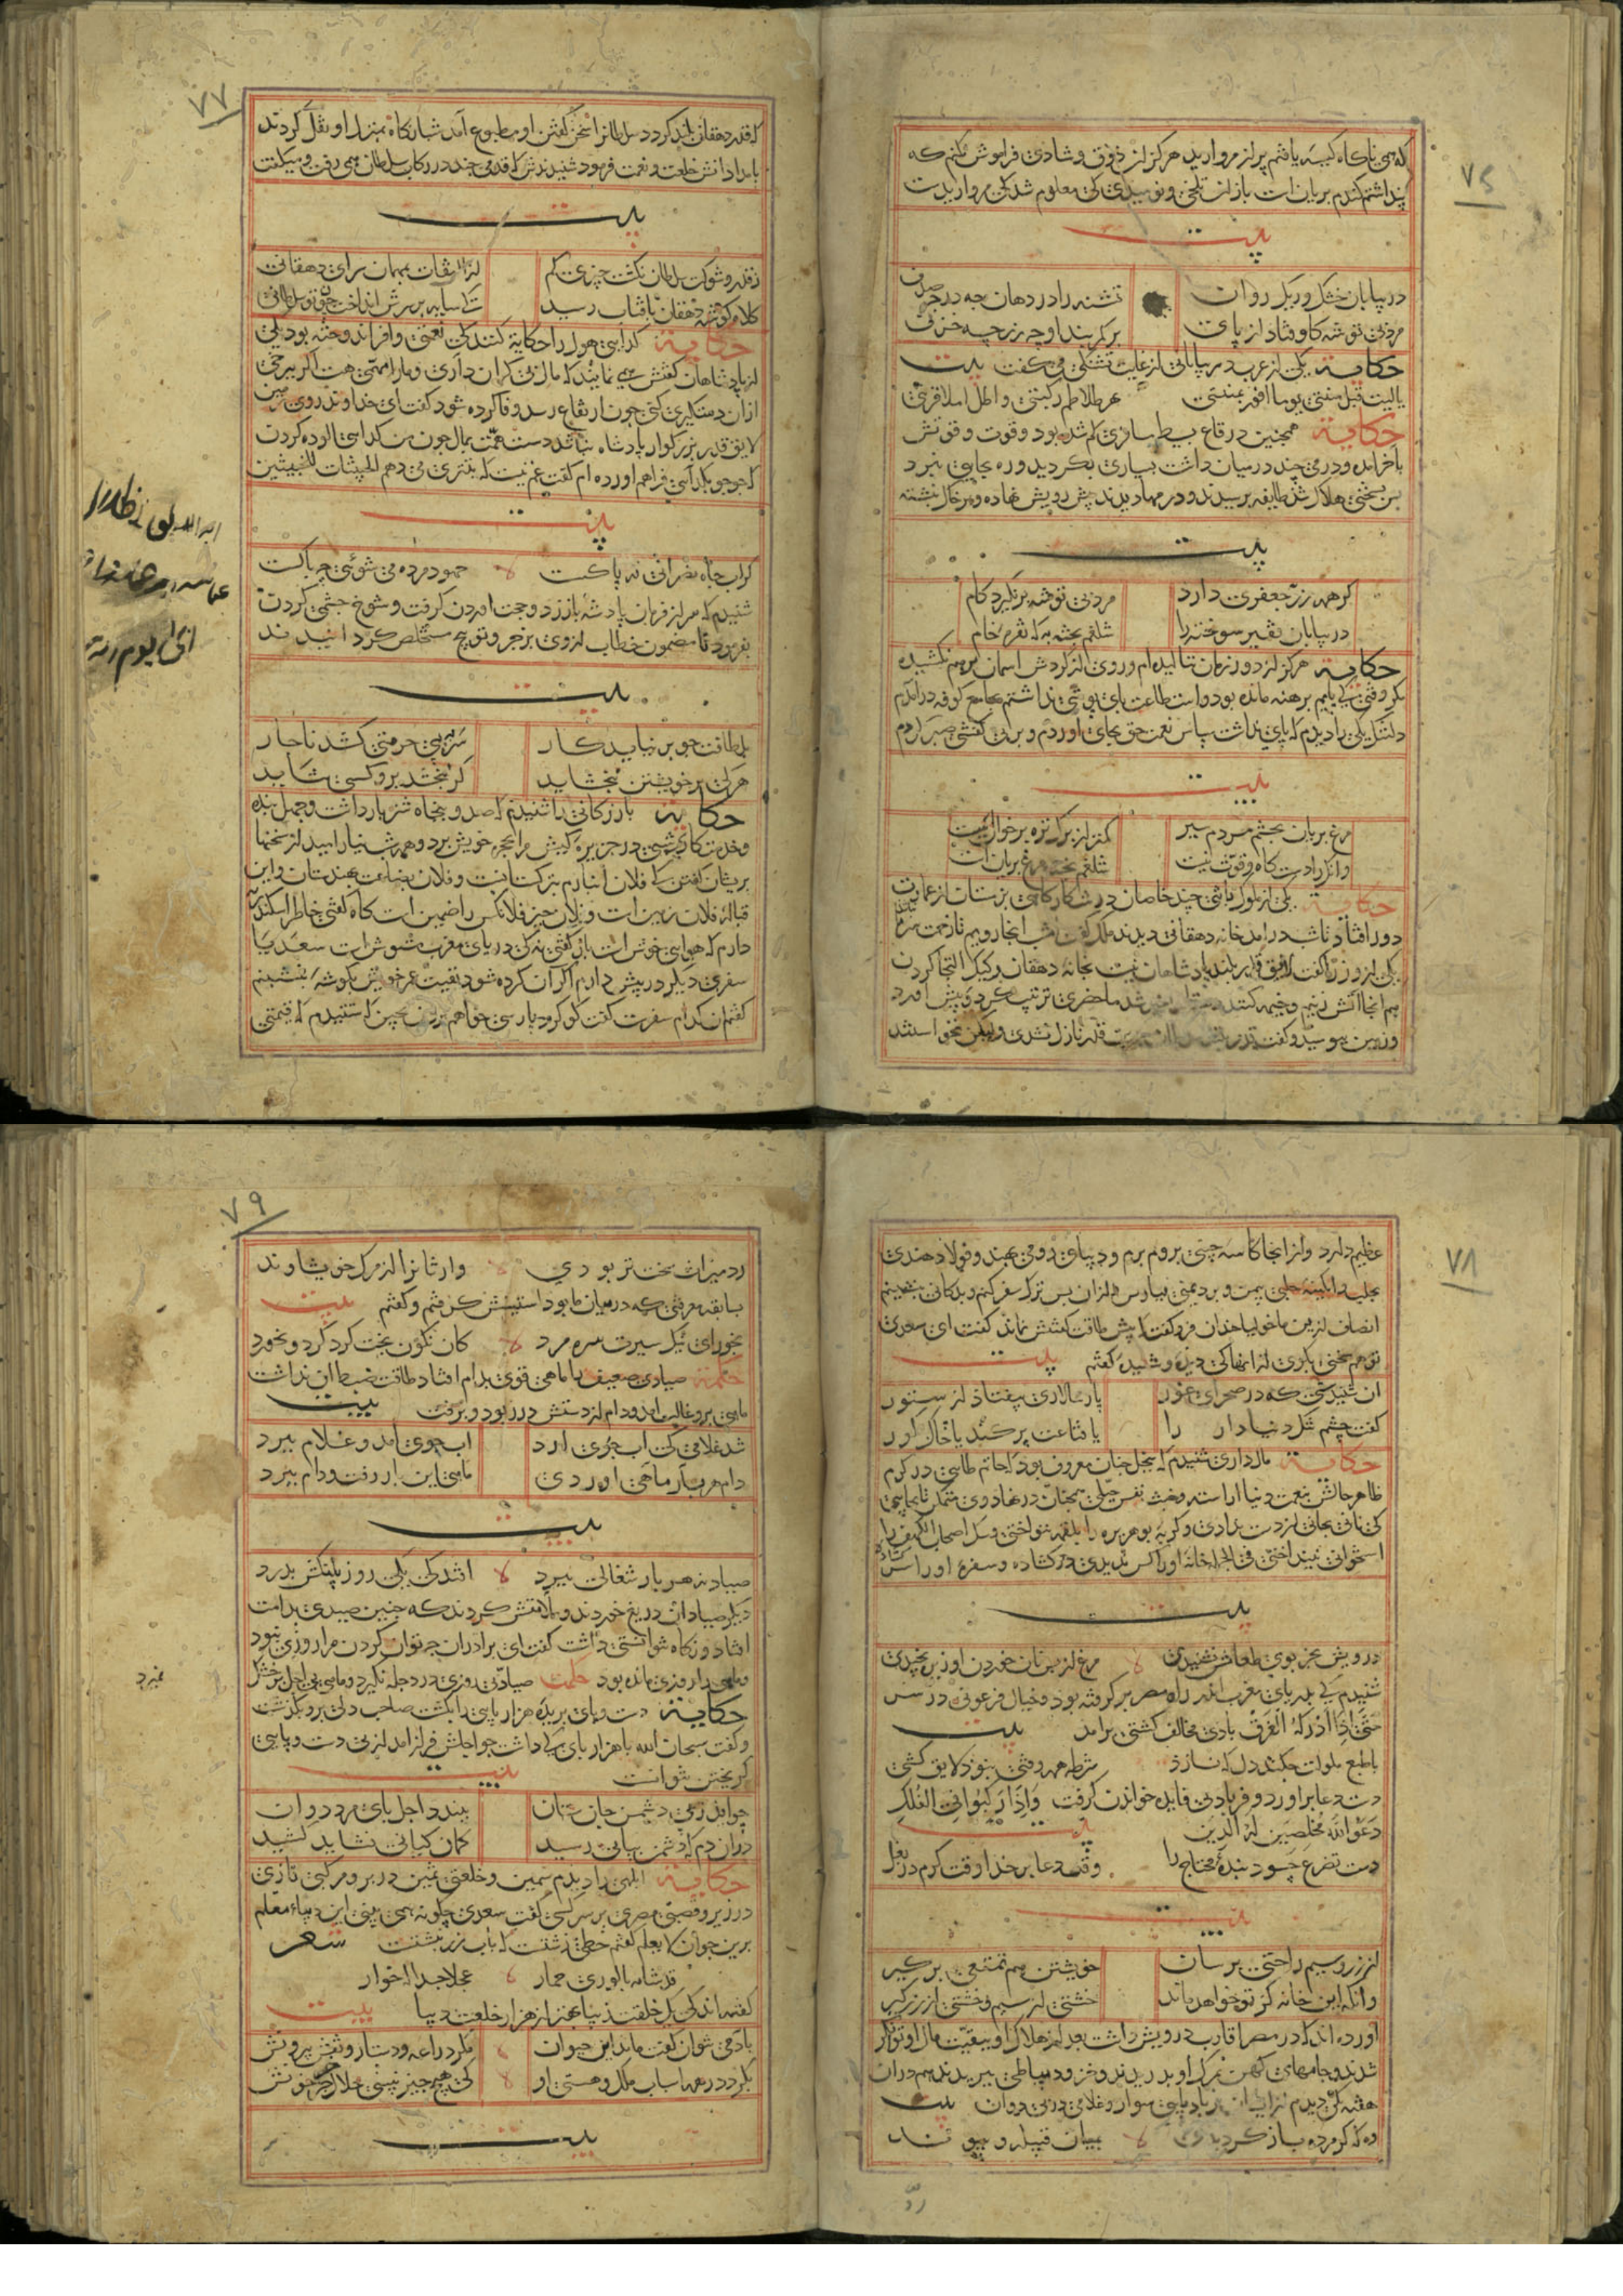 ٧٦
که‌ی ناکاه کیسه یافتم پر از مروارید هرکز ان ذوق و شادی فراموش نکنم که
پنداشتم کندم بریان است باز ان تلخی و نومیدی که معلوم شد که مروارید است
بیت
در بیابان خشک و ریک روان تشنه را در دهان چه در چه صدف
مرد بی توشه کاوفتاد از پای بر کمربند او چه زر چه خزف
حکایة یکی از عرب در بیابانی از غایت تشنکی می کفت بیت
یا لیت قبل منیتی یوما افوز بمنیتی نهر تلاطم رکبتی و اظل املا قربتی
حکایة همچنین در قاع بسیط مسافری کم شده بود و قوت و قوتش
باخر امده و درمی چند در میان داشت بسیاری بکردید و ره بجایی نبرد
بس بسختی هلاک شد طایفه برسیدند و درمها دیدند پیش رویش نهاده و بر خاک نبشته
بیت
کر همه زر جعفری دارد مرد بی توشه بر نکیرد کام
در بیابان فقیر سوخته را شلغم پخته به که نقره خام
حکایة هرکز از دور زمان ننالیده ام و روی از کردش اسمان در هم نکشیده
مکر وقتی که پایم برهنه مانده بود و استطاعت پای پوشی نداشتم بجامع کوفه درامدم
دلتنک یکی را دیدم که پای نداشت سپاس نعمت حق بجای اوردم و بر بی کفشی صبر کردم
بیت
مرغ بریان بچشم مردم سیر کمتر از برک تره بر خوان است
وانکه را دستکاه و قوت نیست شلغم پخته مرغ بریان است
حکایة یکی از ملوک با تنی چند خاصان در شکارکاهی بزمستان از عمارت
دور افتاد تا شب درامد خانه دهقانی دیدند ملک کفت شب انجا رویم تا زحمت سرما
یکی از وزرا کفت لایق قدر بلند پادشاهان نیست بخانه دهقان رکیک التجا کردن
هم اینجا اتش زنیم و خیمه کنیم دهقان را خبر شد ماحضری ترتیب کرد و پیش اورد
و زمین ببوسید و کفت قدر بلند سلطان بدین قدر نازل نشدی ولیکن نخواستند
٧٧
که قدر دهقان بلند کردد سلطانرا سخن کفتن او مطبوع آمد شبانکاه بمنزل او نقل کردند
بامدادانش خلعت و نعمت فرمود شنیدندش که قدمی چند در رکاب سلطان همی رفت و میکفت
بیت
ز قدر و شوکت سلطان نکشت چیزی کم از التفات بمهمان سرای دهقانی
کلاه کوشه دهقان بافتاب رسید که سایه بر سرش انداخت چون تو سلطانی
حکایة کدایی هول را حکایة کنند که نعمتی وافر اندوخته بود یکی
از پادشاهان کفتش همی نمایند که مال بی کران داری و ما را مهمی هست اکر ببرخی
ازان دستکیری کنی چون ارتفاع رسد وفا کرده شود کفت ای خداوند روی زمین
لایق قدر بزرکوار پادشاه نباشد دست همت بمال چون من کدایی الوده کردن
که جو جو بکدایی فراهم اورده ام کفت غم نیست که بتتری می دهم الخبیثات للخبیثین
بیت
کر اب چاه نصرانی نه پاکست جهود مرده می شوئی چه باکست
شنیدم که سر از فرمان پادشه باز زد و حجت اوردن کرفت و شوخ چشمی کردن
بفرمود تا مضمون خطاب از وی بزجر و توبیخ مستخلص کردانیدند
بیت
بلطافت چو بر نیاید کار سر به بی حرمتی کشد ناچار
هر که بر خویشتن نبخشاید کر نبخشد برو کسی شاید
حکایة بازرکانی را شنیدم که صد و پنجاه شتر بار داشت و چهل بنده
و خدمتکار شبی در جزیره کیش مرا بحجره خویش برد و همه شب نیارامید از سخنهای
پریشان کفتن که فلان انبازم بترکستانست و فلان بضاعت بهندستان و این
قباله فلان زمین است و فلان چیز فلانکس را ضمین است کاه کفتی خاطر اسکندریه
دارم که هوایی خوش است باز کفتی نه که دریای مغرب مشوش است سعدیا
سفری دیکر در پیش دارم اکر آن کرده شود بقیت عمر خویش بکوشه بنشینم
کفتم ان کدام سفرست کفت کوکرد پارسی خواهم بردن بچین که شنیدم که قیمتی
٧٨
عظیم دارد و از انجا کاسه چینی بروم برم و دیبای رومی بهند و فولاد هندی
بحلب و ابکینه حلبی بیمن و برد یمنی بپارس و ازان پس ترک سفر کنم و بدکانی بنشینم
انصاف ازین ماخولیا چندان فرو کفت که پیش طاقت کفتنش نماند کفت ای سعدی
تو هم سخنی بکوی از انها که دیده و شنیده کفتم بیت
ان شنیدستی که در صحرای غور بار سالاری بیفتاد از ستور
کفت چشم تنک دنیادار را یا قناعت پر کند یا خاک کور
حکایة مالداری شنیدم که ببخل چنان معروف بود که حاتم طایی در کرم
ظاهر حالش بنعمت دنیا اراسته و خبث نفس جبلی همچنان در نهاد وی متمکن تا بجایی
که نانی بجانی از دست ندادی و کربه بوهریره را بلقمه ننواختی و سک اصحاب الکهف را
استخوانی نینداختی فی الجمله خانه او را کس ندیدی در کشاده و سفره او را سر کشاده
بیت
درویش بجز بوی طعامش نشنیدی مرغ از پس نان خوردن او ریزه نچیدی
شنیدم که بدریای مغرب اندر راه مصر بر کرفته بود و خیال فرعونی در سر
حَتّى اِذا اَدْرَكَهُ الْغَرَقُ بادی مخالف کشتی برامد بیت
با طبع ملولت چکند دل که نسازد شرطه همه وقتی نبود لایق کشتی
دست دعا براورد و فریاد بی فایده خواندن کرفت وَاِذَا رَكِبُوا فِی الفُلكِ
دَعَوُا اللهَ مُخلِصِینَ لَهُ الدّینَ بیت
دست تضرع چه سود بنده محتاج را وقت دعا بر خدا وقت کرم در بغل
بیت
از زر و سیم راحتی برسان خویشتن هم تمتعی برکیر
وانکه این خانه کز تو خواهد ماند خشتی از سیم و خشتی از زر کیر
اورده اند که در مصر اقارب درویش داشت بعد از هلاک او ببقیت مال او توانکر
شدند و جامهای کهن بمرک او بدریدند و خز و دمیاطی ببریدند هم دران
هفته یکی دیدم از ایشان بر بادپایی سوار و غلامی در پی دوان بیت
وه که کر مرده باز کردیدی بمیان قبیله و پیوند
٧٩
رد میراث سخت تر بودی وارثانرا از مرک خویشاوند
بسابقه معرفتی که در میان ما بود استینش کرفتم و کفتم بیت
بخور ای نیک سیرت سره مرد کان نکون بخت کرد کرد و نخورد
حکایة صیادی ضعیف را ماهی قوی بدام افتاد طاقت ضبط ان نداشت
ماهی برو غالب امد و دام از دستش در ربود و برفت بیت
شد غلامی که اب جوی ارد اب جوی آمد و غلام ببرد
دام هر بار ماهی اوردی ماهی این بار رفت و دام ببرد
بیت
صیاد نه هر بار شغالی ببرد افتد که یکی روز پلنکش بدرد
دیکر صیادان دریغ خوردند و ملامتش کردند که چنین صیدی بدامت
افتاد و نکاه نتوانستی داشت کفت ای برادران چه توان کردن مرا روزی نبود
و ماهی را روزی مانده بود حکمت صیاد بی روزی در دجله نکیرد و ماهی بی اجل بر خشک
نمیرد
حکایة دست و پای بریده هزار پایی را بکشت صاحب دلی برو بکذشت
و کفت سبحان الله با هزار پای که داشت چو اجلش فراز امد از بی دست و پایی
کریختن نتوانست بیت
چو اید ز پی دشمن جان ستان ببندد اجل پای مرد دوان
دران دم که دشمن پیاپی رسید کمان کیانی نشاید کشید
حکایة ابلهی را دیدم سمین و خلعتی ثمین در بر و مرکبی تازی
در زیر و قصبی مصری بر سر کسی کفت سعدی چکونه همی بینی این دیباء معلم
برین حیوان لا یعلم کفتم خطی زشتست که باب زر نبشتست شعر
قد شابه بالوری حمار عجلا جسدا له خوار
کفته اند که یک خلقت زیبا بهتر از هزار خلعت دیبا بیت
بآدمی نتوان کفت ماند این حیوان مکر دراعه و دستار و نقش بیرونش
بکرد در همه اسباب ملک و هستی او که هیچ چیز نبینی حلال جز خونش
بیت